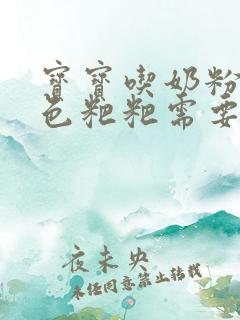 寶寶喫奶粉
色粑粑需要
夜未央
未經同意禁止轉載